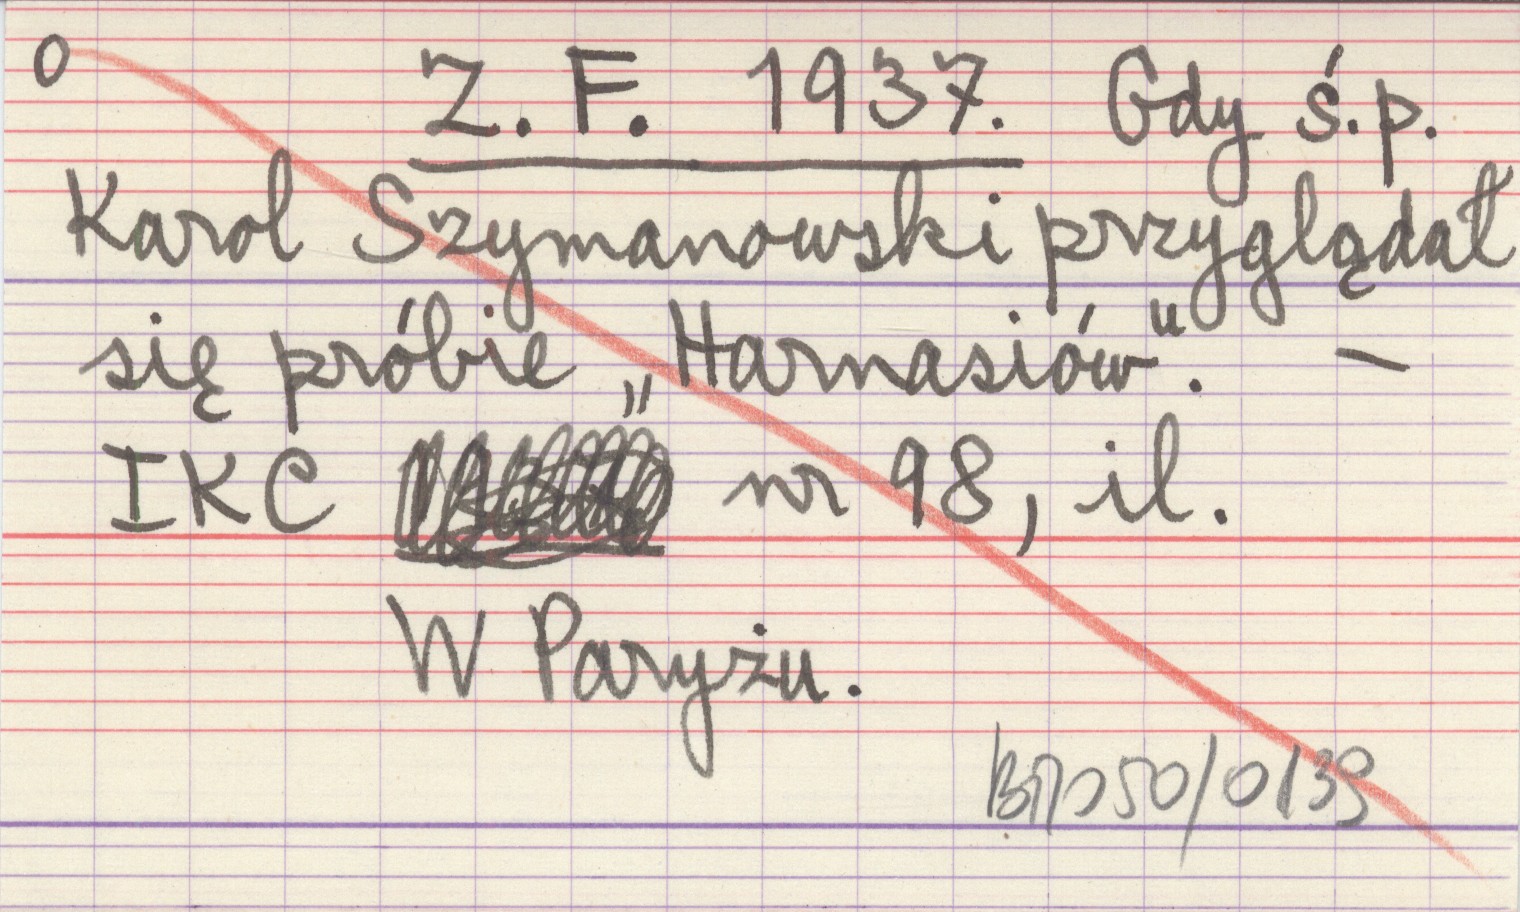 0 Z. F. 1937. Gdy ś.p.
Karol Szymanowski przyglądał
się próbie „Harnasiów". –
IKC nr 98, il.
W Paryżu.
50/0139